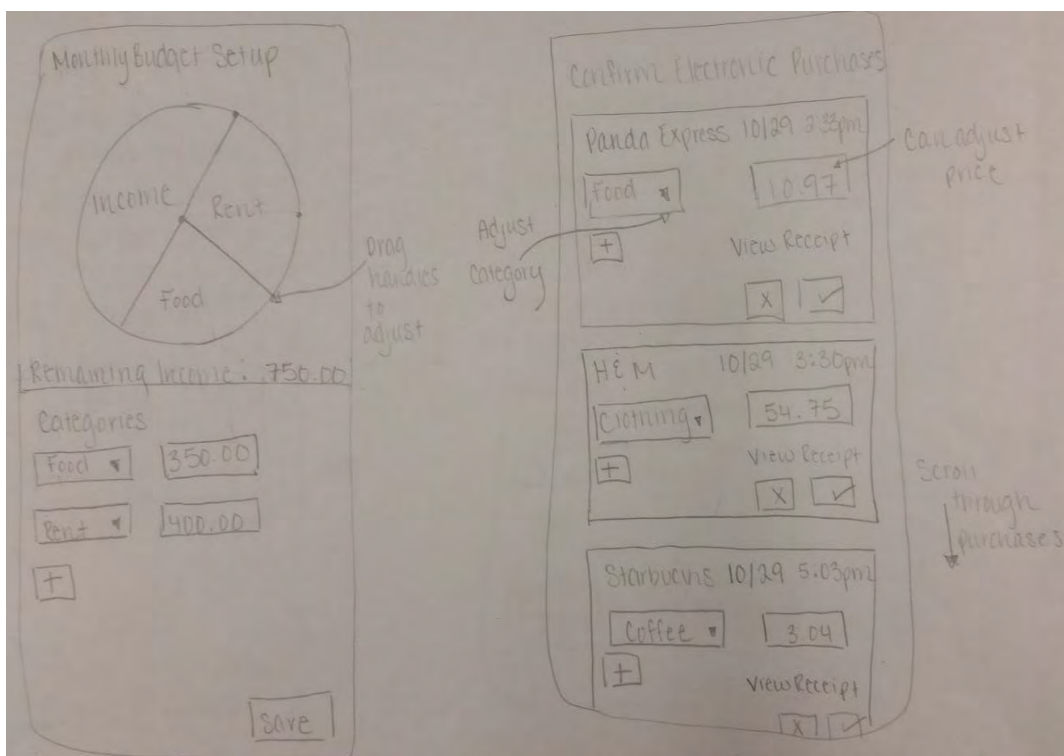 Monthly Budget Setup
Income
Rent
Food
Drag
handles
to
adjust
Remaining Income: 750.00
Categories
Food 350.00
Rent 400.00
+
Save
Confirm Electronic Purchases
Panda Express 10/29 2:33pm
Food 10.97
+
View Receipt
X
Can adjust
price
Adjust
Category
H&M 10/29 3:30pm
Clothing 54.75
+
View Receipt
X
Scroll
through
purchases
Starbucks 10/29 5:03pm
Coffee 3.04
+
View Receipt
X